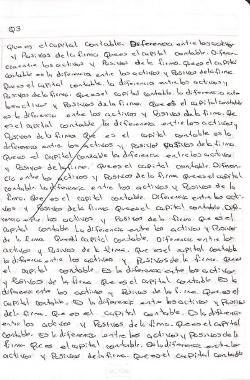 Q3
Que es el capital contable. Diferencia entre los activos
y Pasivos de la firma. Que es el capital contable. Diferen
cia entre los activos y Pasivos de la firma. Que es el capital
contable es la diferencia entre los activos y Pasivos de la firma.
Que es el capital contable. la diferencia entre los activos
y Pasivos de la firma. Que es el capital contable. la diferencia entre
los activos y Pasivos de la firma. Que es el capital contable
es la diferencia entre los activos y Pasivos de la firma. Que
es el capital contable. la diferencia entre los activos y
Pasivos de la firma. Que es el capital contable es la
diferencia entre los activos y Pasivos de la firma.
Que es el capital contable la diferencia entre los activos
y Pasivos de la firma. Que es el capital contable. Diferen
cia entre los activos y Pasivos de la firma. Que es el capital
contable. la diferencia entre los activos y Pasivos de la
firma. Que es el capital contable. Diferencia entre los acti
vos y Pasivos de la firma. Que es el capital contable. Dife
rencia entre los activos y Pasivos de la firma. Que es el
capital contable. La diferencia entre los activos y Pasivos
de la firma. Que es el capital contable. Diferencia entre los
activos y Pasivos de la firma. Que es el capital contable
la diferencia entre los activos y Pasivos de la firma. Que
es el capital contable. Es la diferencia entre los activos
y Pasivos de la firma. Que es el capital contable Es la
diferencia entre los activos y Pasivos de la firma. Que es el
capital contable. Es la diferencia entre los activos y Pasivos
de la firma. Que es el capital contable. Es la diferencia
entre los activos y Pasivos de la firma. Que es el capital
contable. Es la diferencia entre los activos y Pasivos de la
firma. Que es el capital contable. Es la diferencia entre los
activos y Pasivos de la firma. Que es el capital contable